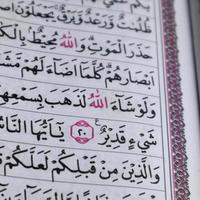 ظُلُمَٰتٌ وَرَعْدٌ وَبَرْقٌ يَجْعَلُونَ
حَذَرَ الْمَوْتِ وَاللَّهُ مُحِيطٌ
أَبْصَارَهُمْ كُلَّمَا أَضَاءَ لَهُمْ
وَلَوْ شَاءَ اللَّهُ لَذَهَبَ بِسَمْعِهِمْ
شَيْءٍ قَدِيرٌ ٢٠ يَٰأَيُّهَا النَّاسُ
وَالَّذِينَ مِنْ قَبْلِكُمْ لَعَلَّكُمْ